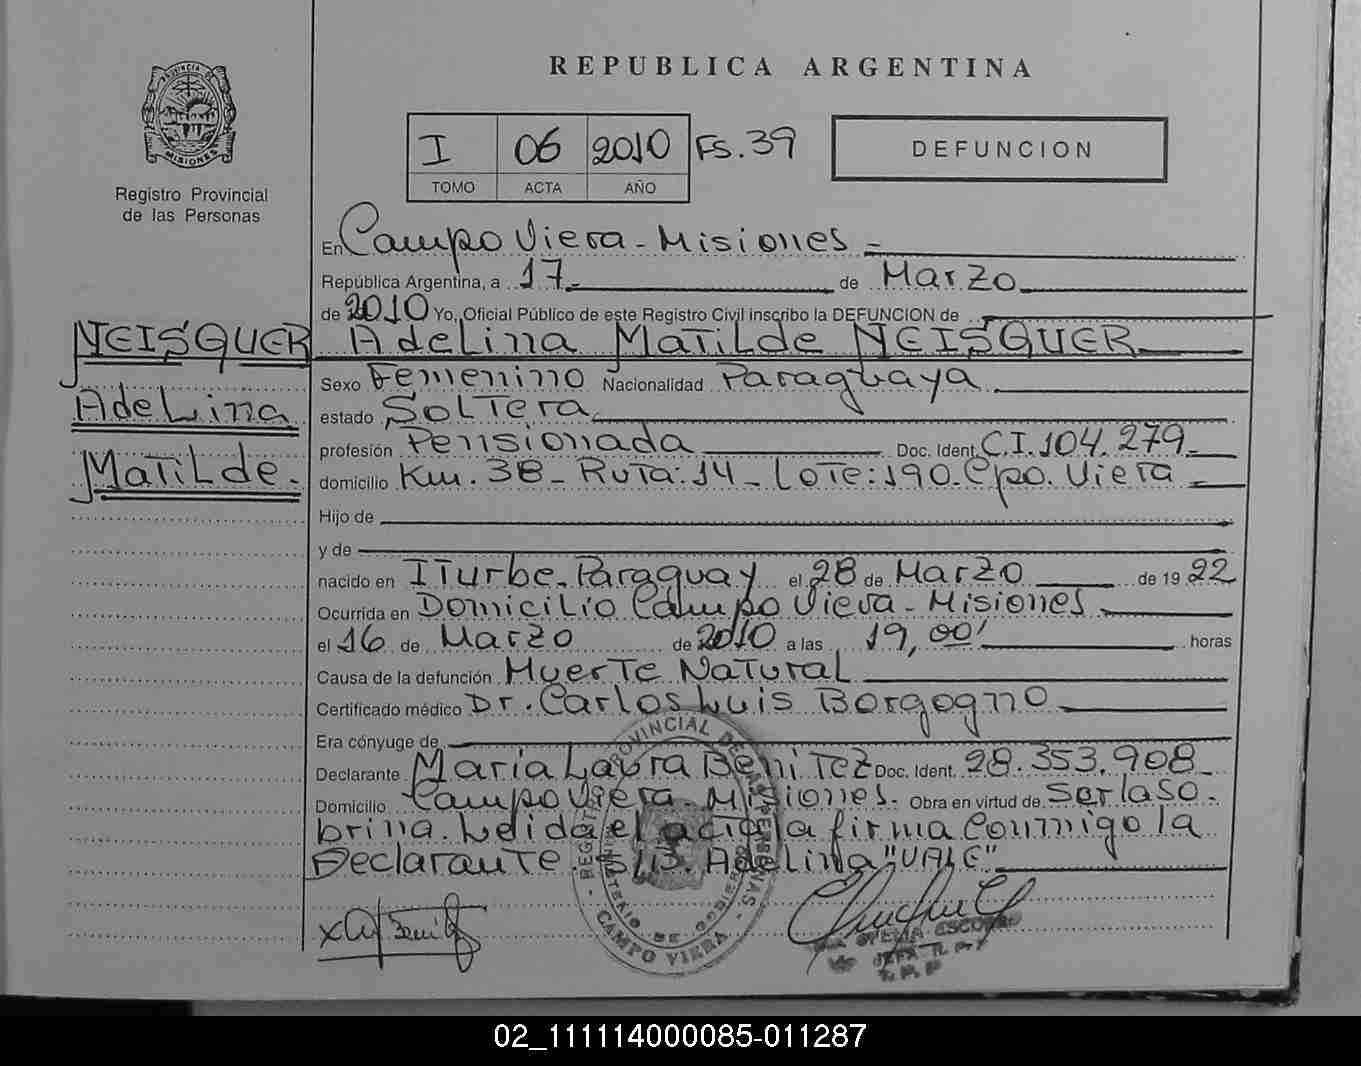 REPUBLICA ARGENTINA
PROVINCIA DE
MISIONES
Registro Provincial
de las Personas
I 06 2010 FS.39
TOMO ACTA AÑO
DEFUNCION
En Campo Viera - Misiones -
República Argentina, a 17 de Marzo
de 2010 Yo, Oficial Público de este Registro Civil inscribo la DEFUNCION de
NEISQUER Adelina Matilde NEISQUER
Sexo Femenino Nacionalidad Paraguaya
Adelina
estado Soltera
profesión Pensionada Doc. Ident. C.I. 104.279
Matilde.
domicilio Km. 38 - Ruta: 14 - Lote: 190. Cpo. Viera
Hijo de
y de
nacido en Iturbe - Paraguay el 28 de Marzo de 1922
Ocurrida en Domicilio Campo Viera - Misiones
el 16 de Marzo de 2010 a las 19,00' horas
Causa de la defunción Muerte Natural
Certificado médico Dr. Carlos Luis Borgogno
Era cónyuge de
Declarante Maria Laura Benitez Doc. Ident. 28.353.908
Domicilio Campo Viera - Misiones. Obra en virtud de Ser la So-
brina. Leida el acta la firma Conmigo la
Declarante. S/B. Adelina "VALE"
REGISTRO PROVINCIAL DE LAS PERSONAS
MINISTERIO DE GOBIERNO
CAMPO VIERA
02_111114000085-011287